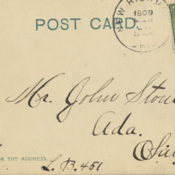 POST CARD
NEW RICHM
1909
Mr. John Stou
Ada.
Ohi
R THE ADDRESS
L. B. 451